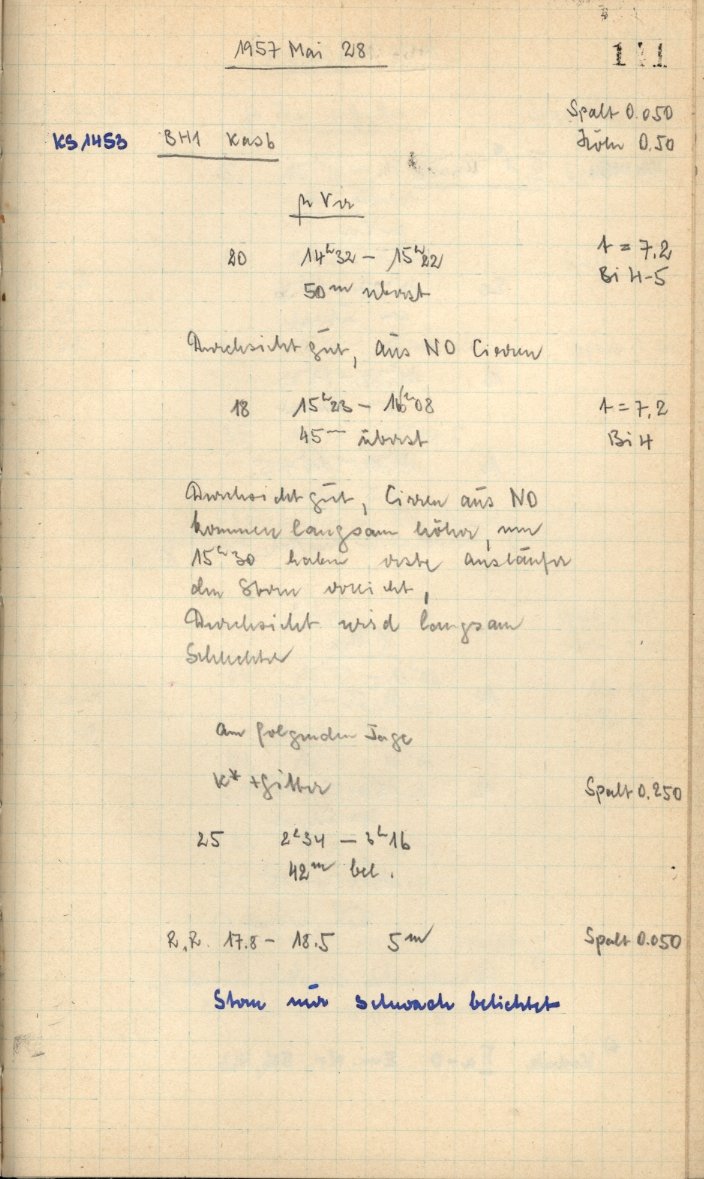 1957 Mai 28
111
Spalt 0.050
KS 1453 BH1 Kasb
Höhe 0,50
μ Vir
20 14ʰ32 – 15ʰ22
t = 7,2
Bi 4-5
50ᵐ überst
Durchsicht gut, aus NO Cirren
18 15ʰ23 – 16ʰ08
t = 7,2
45ᵐ überst
Bi 4
Durchsicht gut, Cirren aus NO
kommen langsam höher, um
15ʰ30 haben erste Ausläufer
den Stern erreicht,
Durchsicht wird langsam
schlechter
am folgenden Tage
K* + Gitter
Spalt 0.250
25 2ʰ34 – 3ʰ16
42ᵐ bel.
R.R. 17.8 – 18.5 5ᵐ
Spalt 0.050
Stern nur schwach belichtet